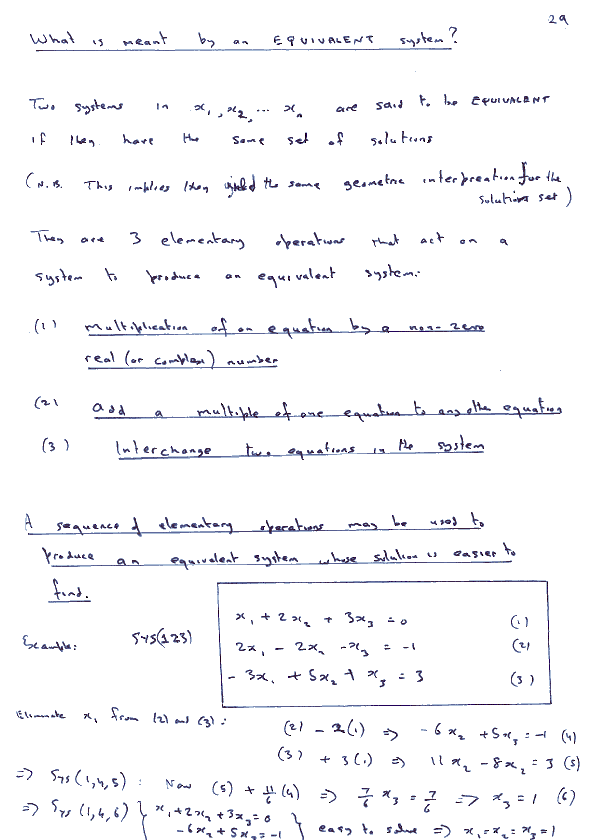 29
What is meant by an EQUIVALENT system?
Two systems in x₁, x₂, ... xₙ are said to be EQUIVALENT
if they have the same set of solutions
(N.B. This implies they yield the same geometric interpreation for the
solution set)
They are 3 elementary operations that act on a
system to produce an equivalent system:
(1) multiplication of an equation by a non-zero
real (or complex) number
(2) add a multiple of one equation to any other equation
(3) Interchange two equations in the system
A sequence of elementary operations may be used to
produce an equivalent system whose solution is easier to
find.
x₁ + 2x₂ + 3x₃ = 0 (1)
Example: SYS(123) 2x₁ - 2x₂ - x₃ = -1 (2)
- 3x₁ + 5x₂ + x₃ = 3 (3)
Eliminate x₁ from (2) and (3): (2) - 2(1) => -6x₂ + 5x₃ = -1 (4)
(3) + 3(1) => 11x₂ - 8x₃ = 3 (5)
=> Sys (1,4,5) : Now (5) + 11/6 (4) => 7/6 x₃ = 7/6 => x₃ = 1 (6)
=> Sys (1,4,6) { x₁ + 2x₂ + 3x₃ = 0
-6x₂ + 5x₃ = -1 } easy to solve => x₁ = x₂ = x₃ = 1